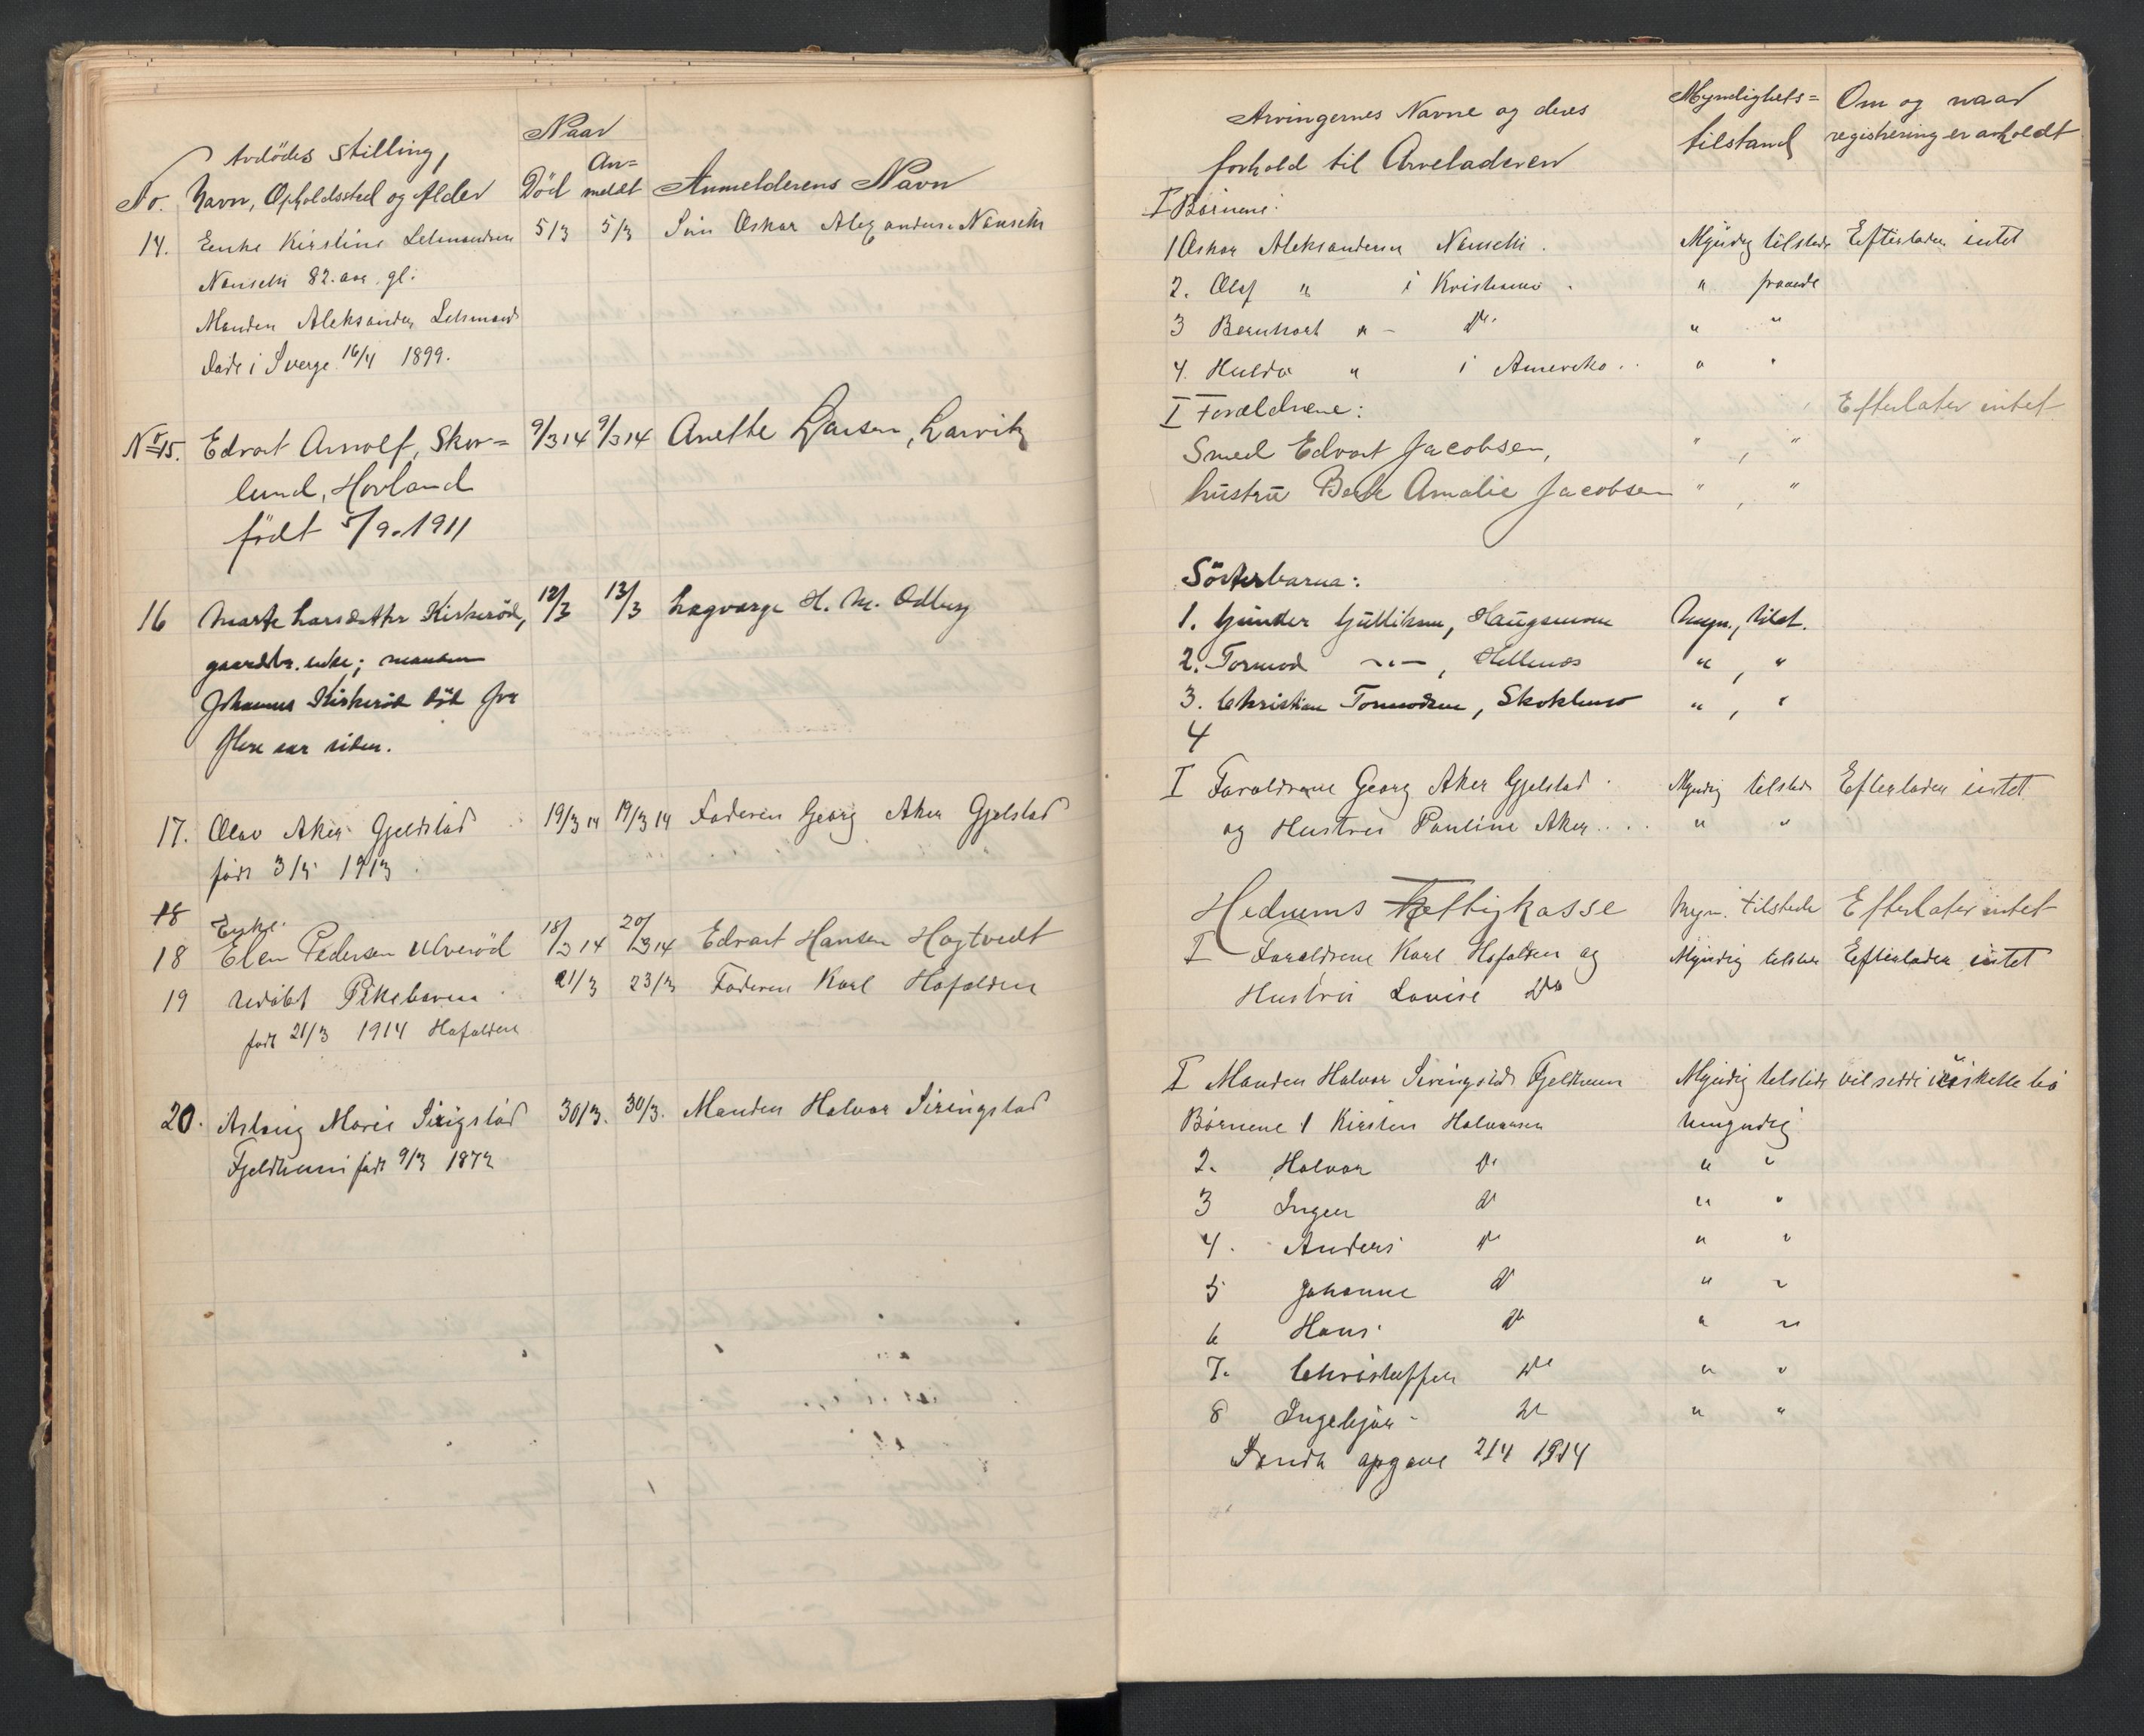 No. Avdödes Stilling,
Navn, Opholdssted og Alder
Naar
Död
An=
meldt
Anmelderens Navn
14. Enke Kirstine
Nanseth 82. aar gl.
Manden Aleksander
död i Sverge 16/4 1899.
5/3 5/3 Sön Oskar Alexandersen Nanseth
No 15. Edvart Arnolf, Skor=
lund, Hovland
født 5/9. 1911
9/3 14 9/3 14 Anette Larsen, Larvik
16 Marte Larsdatter Kirkeröd,
gaardbr. enke; manden
Johannes Kirkeröd död for
flere aar siden.
12/3 13/3 Lagvarge H. M. Odberg
17. Olav Aker Gjelstad
födt 3/5 1913
19/3 14 19/3 14 Faderen Georg Aker Gjelstad
18
Enke.
18 Elen Pedersen Ulveröd 18/3 14 20/3 14 Edvart Hansen Hogtvedt
19 Udöbt Pikebarn
födt 21/3 1914 Hafalden
21/3 23/3 Faderen Karl Hafalden
20. Aslaug Marie Siringstad
Fjeldheim födt 9/3 1872
30/3. 30/3. Manden Halvor Siringstad
Arvingernes Navne og deres
forhold til Arveladeren
Myndighets=
tilstand
Om og naar
registrering er avholdt
I Børnene:
1 Oskar Aleksandersen Nanseth. Myndig tilstede Efterlader intet
2. Olaf " i Kristiania. " fraværende
3 Bernhart " - Do. " "
4. Hulda " i Amerika.. " "
I Forældrene: Efterlater intet
Smed Edvart Jacobsen, " , "
hustru Berte Amalie Jacobsen " , "
Sösterbarna:
1. Gunder Gulliksen, Haugsmoen Myn., tilst.
2. Tormod -"-, Hellenes " , "
3. Christian Tormodsen, Skoklund " , "
4
I Foraldrene Georg Aker Gjelstad Myndig tilstede Efterlader intet
og Hustru Pauline Aker.... " "
Hedrums Fattigkasse Myn. tilstede Efterlater intet
I Foraldrene Karl Hafalden og Myndig tilstede Efterlader intet
Hustru Lovise Do
I Manden Halvor Siringstad Fjeldheim Myndig tilstede vil sidde i uskiftet bo
Børnene 1 Kirsten Halvorsen Umyndig
2. Halvor Do " "
3 Inger Do " "
4. Anders Do " "
5 Johanne Do " "
6 Hans Do " "
7. Christoffer Do " "
8 Ingebjør Do " "
Sendt opgave 2/4 1914